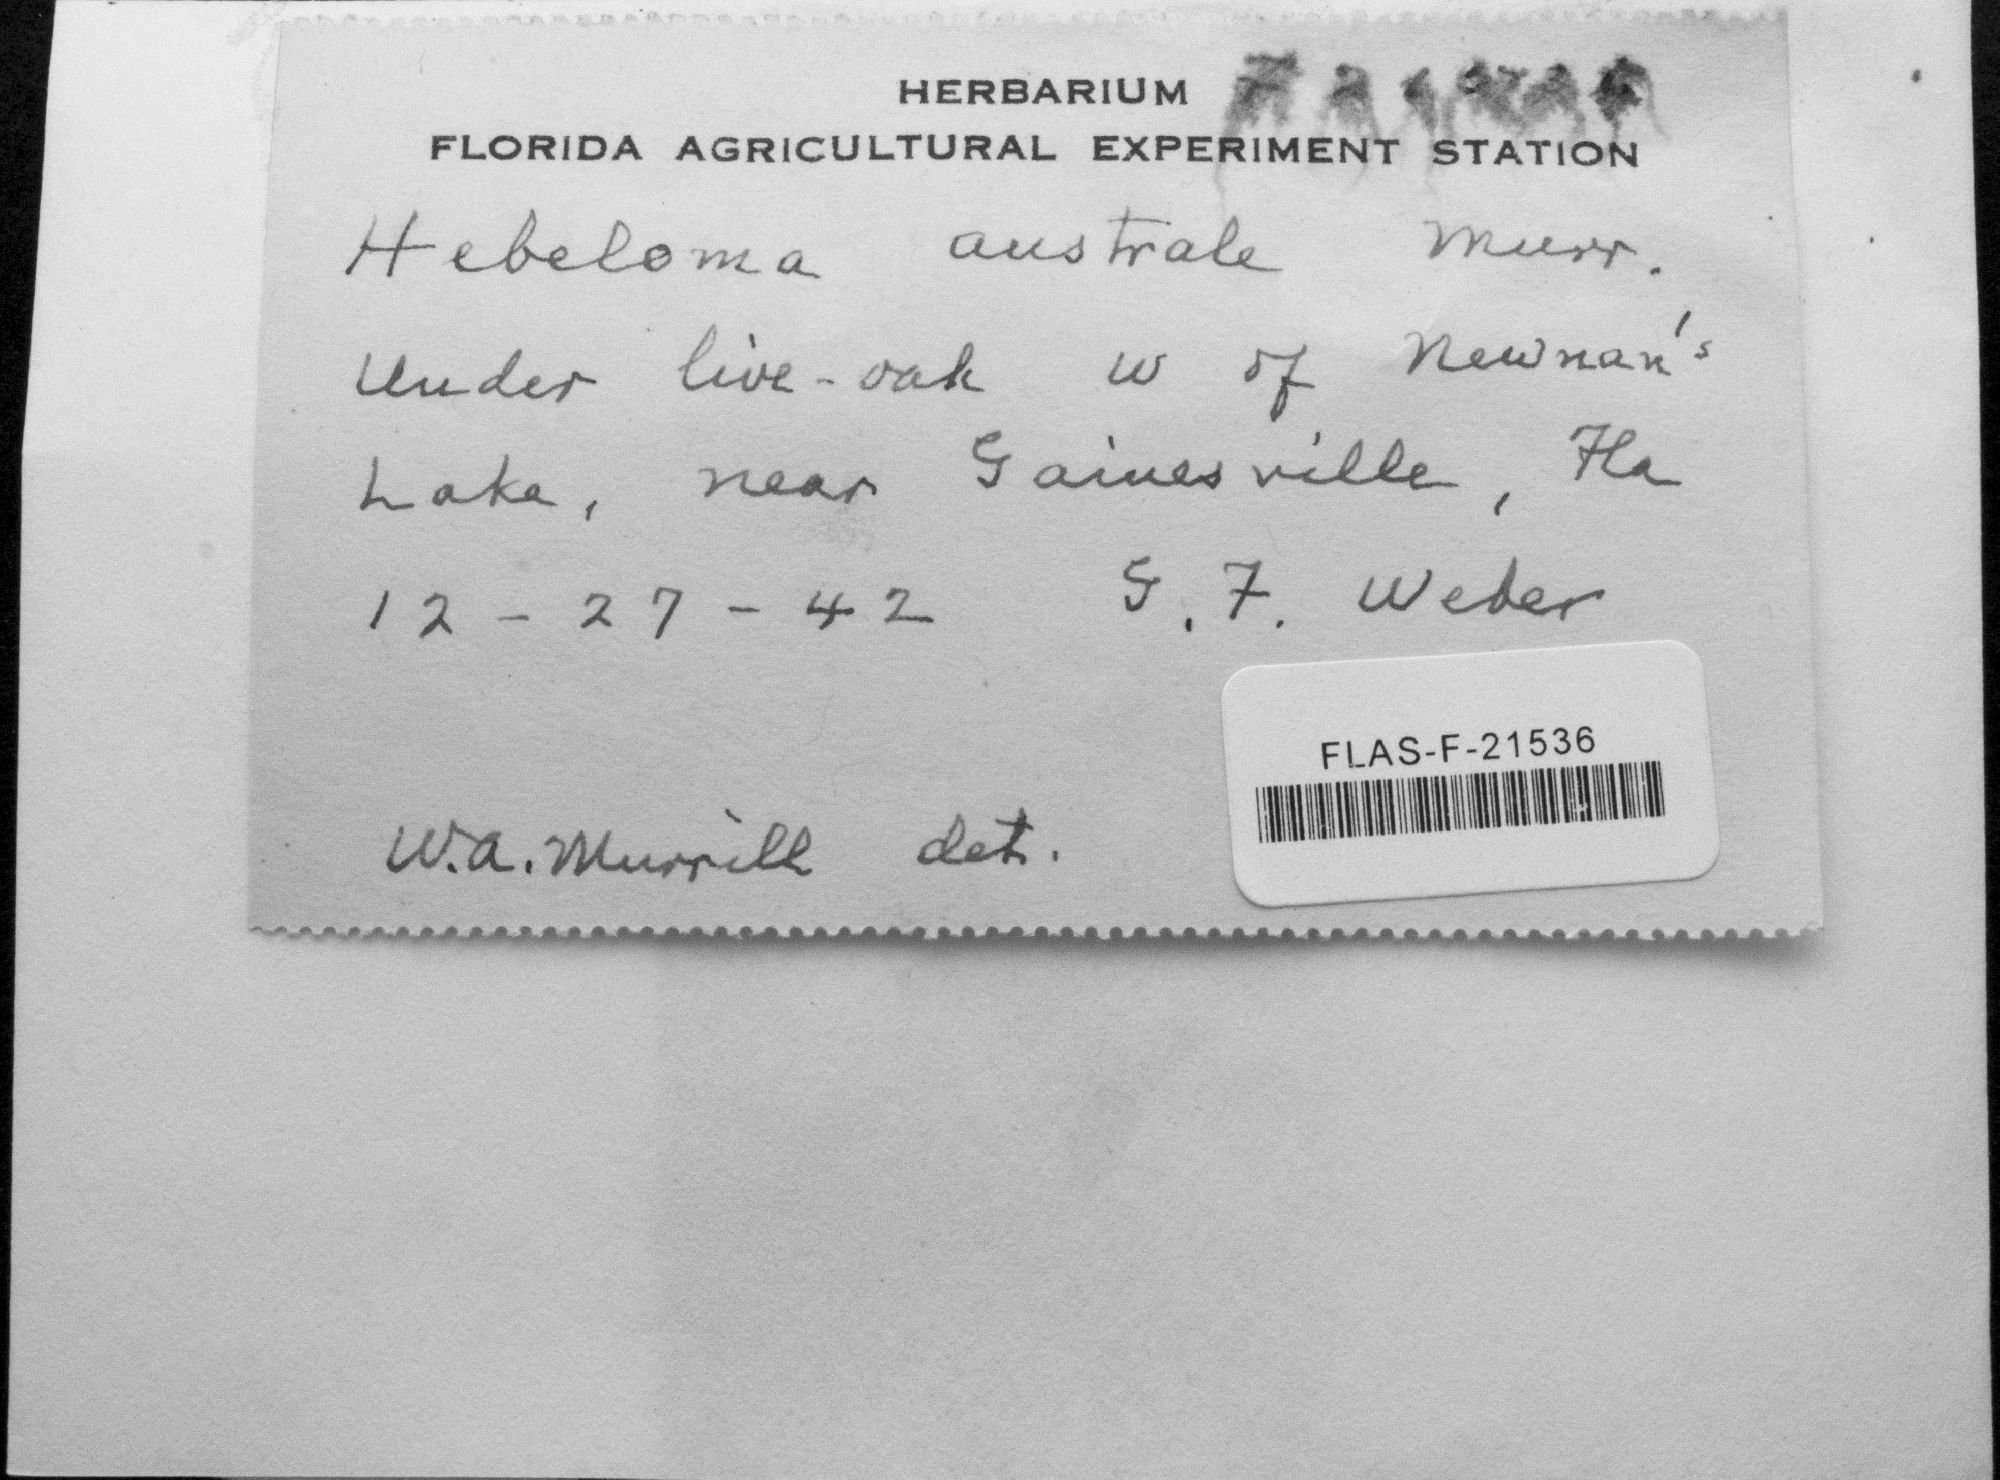 HERBARIUM
FLORIDA AGRICULTURAL EXPERIMENT STATION
Hebeloma australe Murr.
Under live-oak W of Newnan's
Lake, near Gainesville, Fla
12-27-42 G. F. Weber
FLAS-F-21536
W.A. Murrill det.